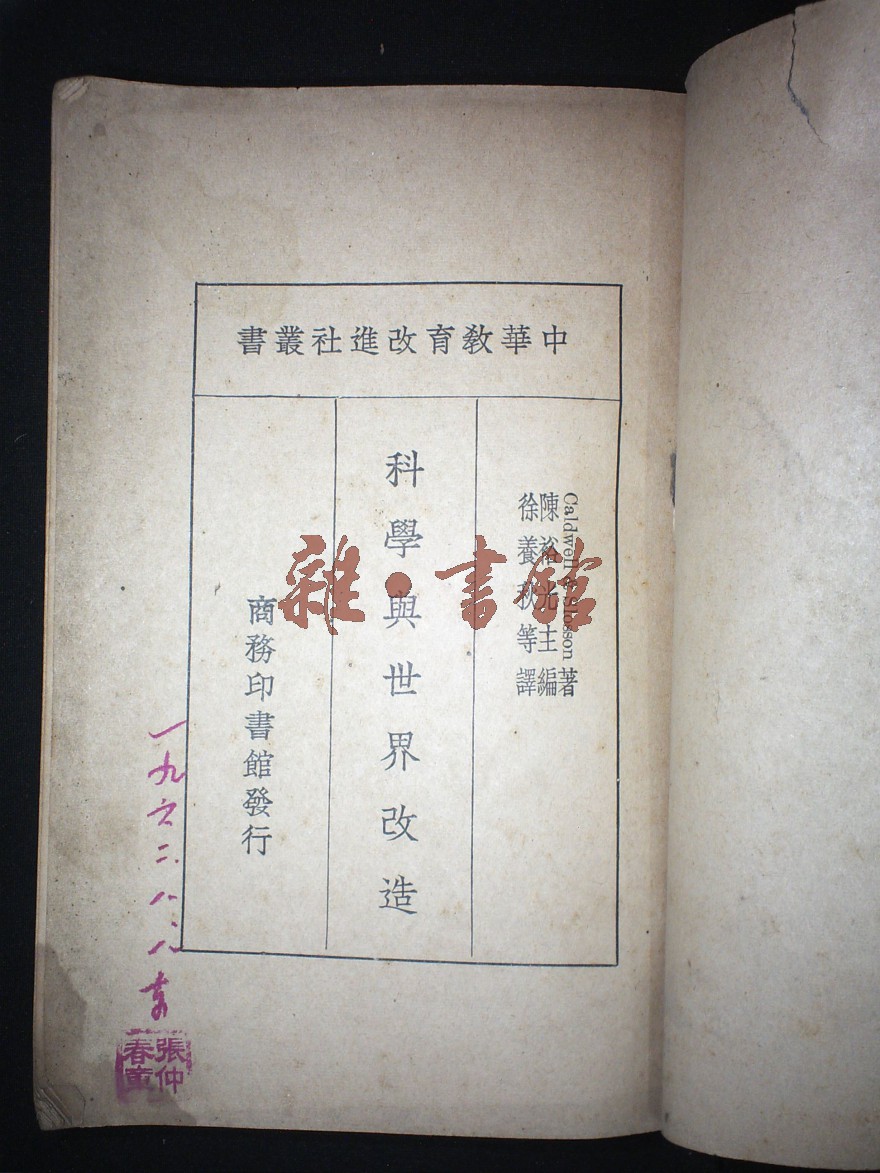 中華教育改進社叢書
Caldwell & Slosson 著
陳裕光主編
徐養秋等譯
科學與世界改造
商務印書館發行
一九六二.八.八
張仲
春
雜·書館